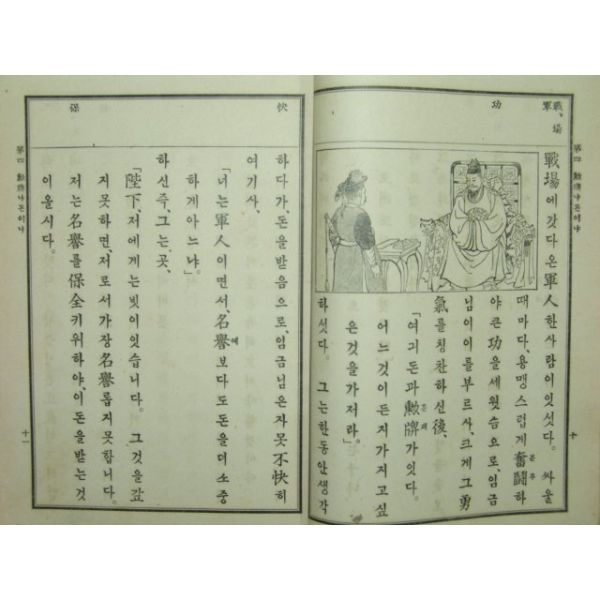 戰、場
軍
功
第四 勳牌냐돈이냐
戰場에갓다온軍人한사람이잇섯다. 싸울
때마다、용맹스럽게奮鬪하
야큰功을세웟슴으로、임금
님이이를부르사、크게그勇
氣를칭찬하신後、
「여긔돈과勳牌가잇다.
어느것이든지가지고싶
은것을가저라」.
하섯다. 그는한동안생각
十
快
保
하다가、돈을받음으로、임금님은자못不快히
여기사、
「너는軍人이면서、名譽보다도돈을더소중
하게아느냐」.
하신즉、그는、곳、
「陛下、저에게는빗이잇습니다. 그것을갚
지못하면、저로서가장名譽롭지못합니다.
저는名譽를保全키위하야、이돈을받는것
이올시다.
第四 勳牌냐돈이냐
十一